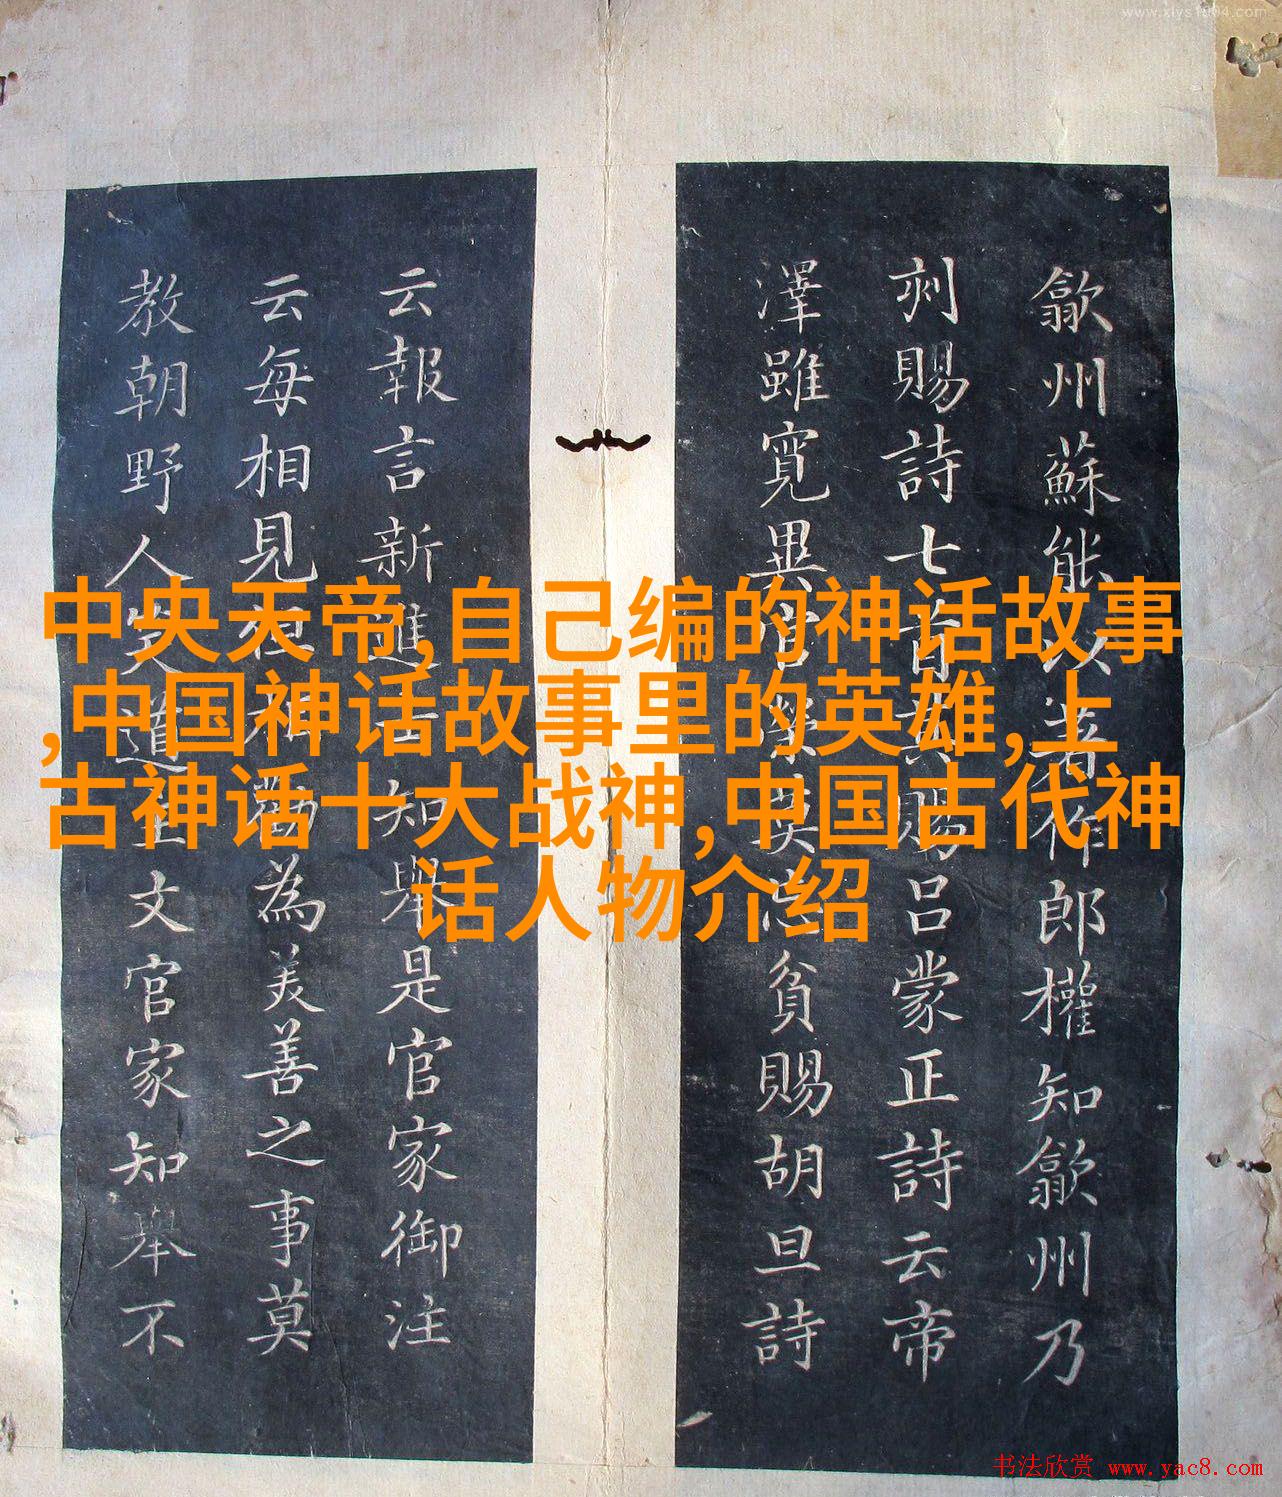 www.xiys1004.com
中央天帝,自己编的神话故事
,中国神话故事里的英雄,上
古神话十大战神,中国古代神
话人物介绍
歙州蘇能以著作郎權知歙州乃
刾賜詩七首其賜呂蒙正詩云帝
澤雖寬異官榮莫忘貧賜胡旦詩
云報言新進士知舉是官家御注
云每相見但相勸為美善之事莫
教朝野人笑道文官家知舉不
书法欣赏 www.yac8.com